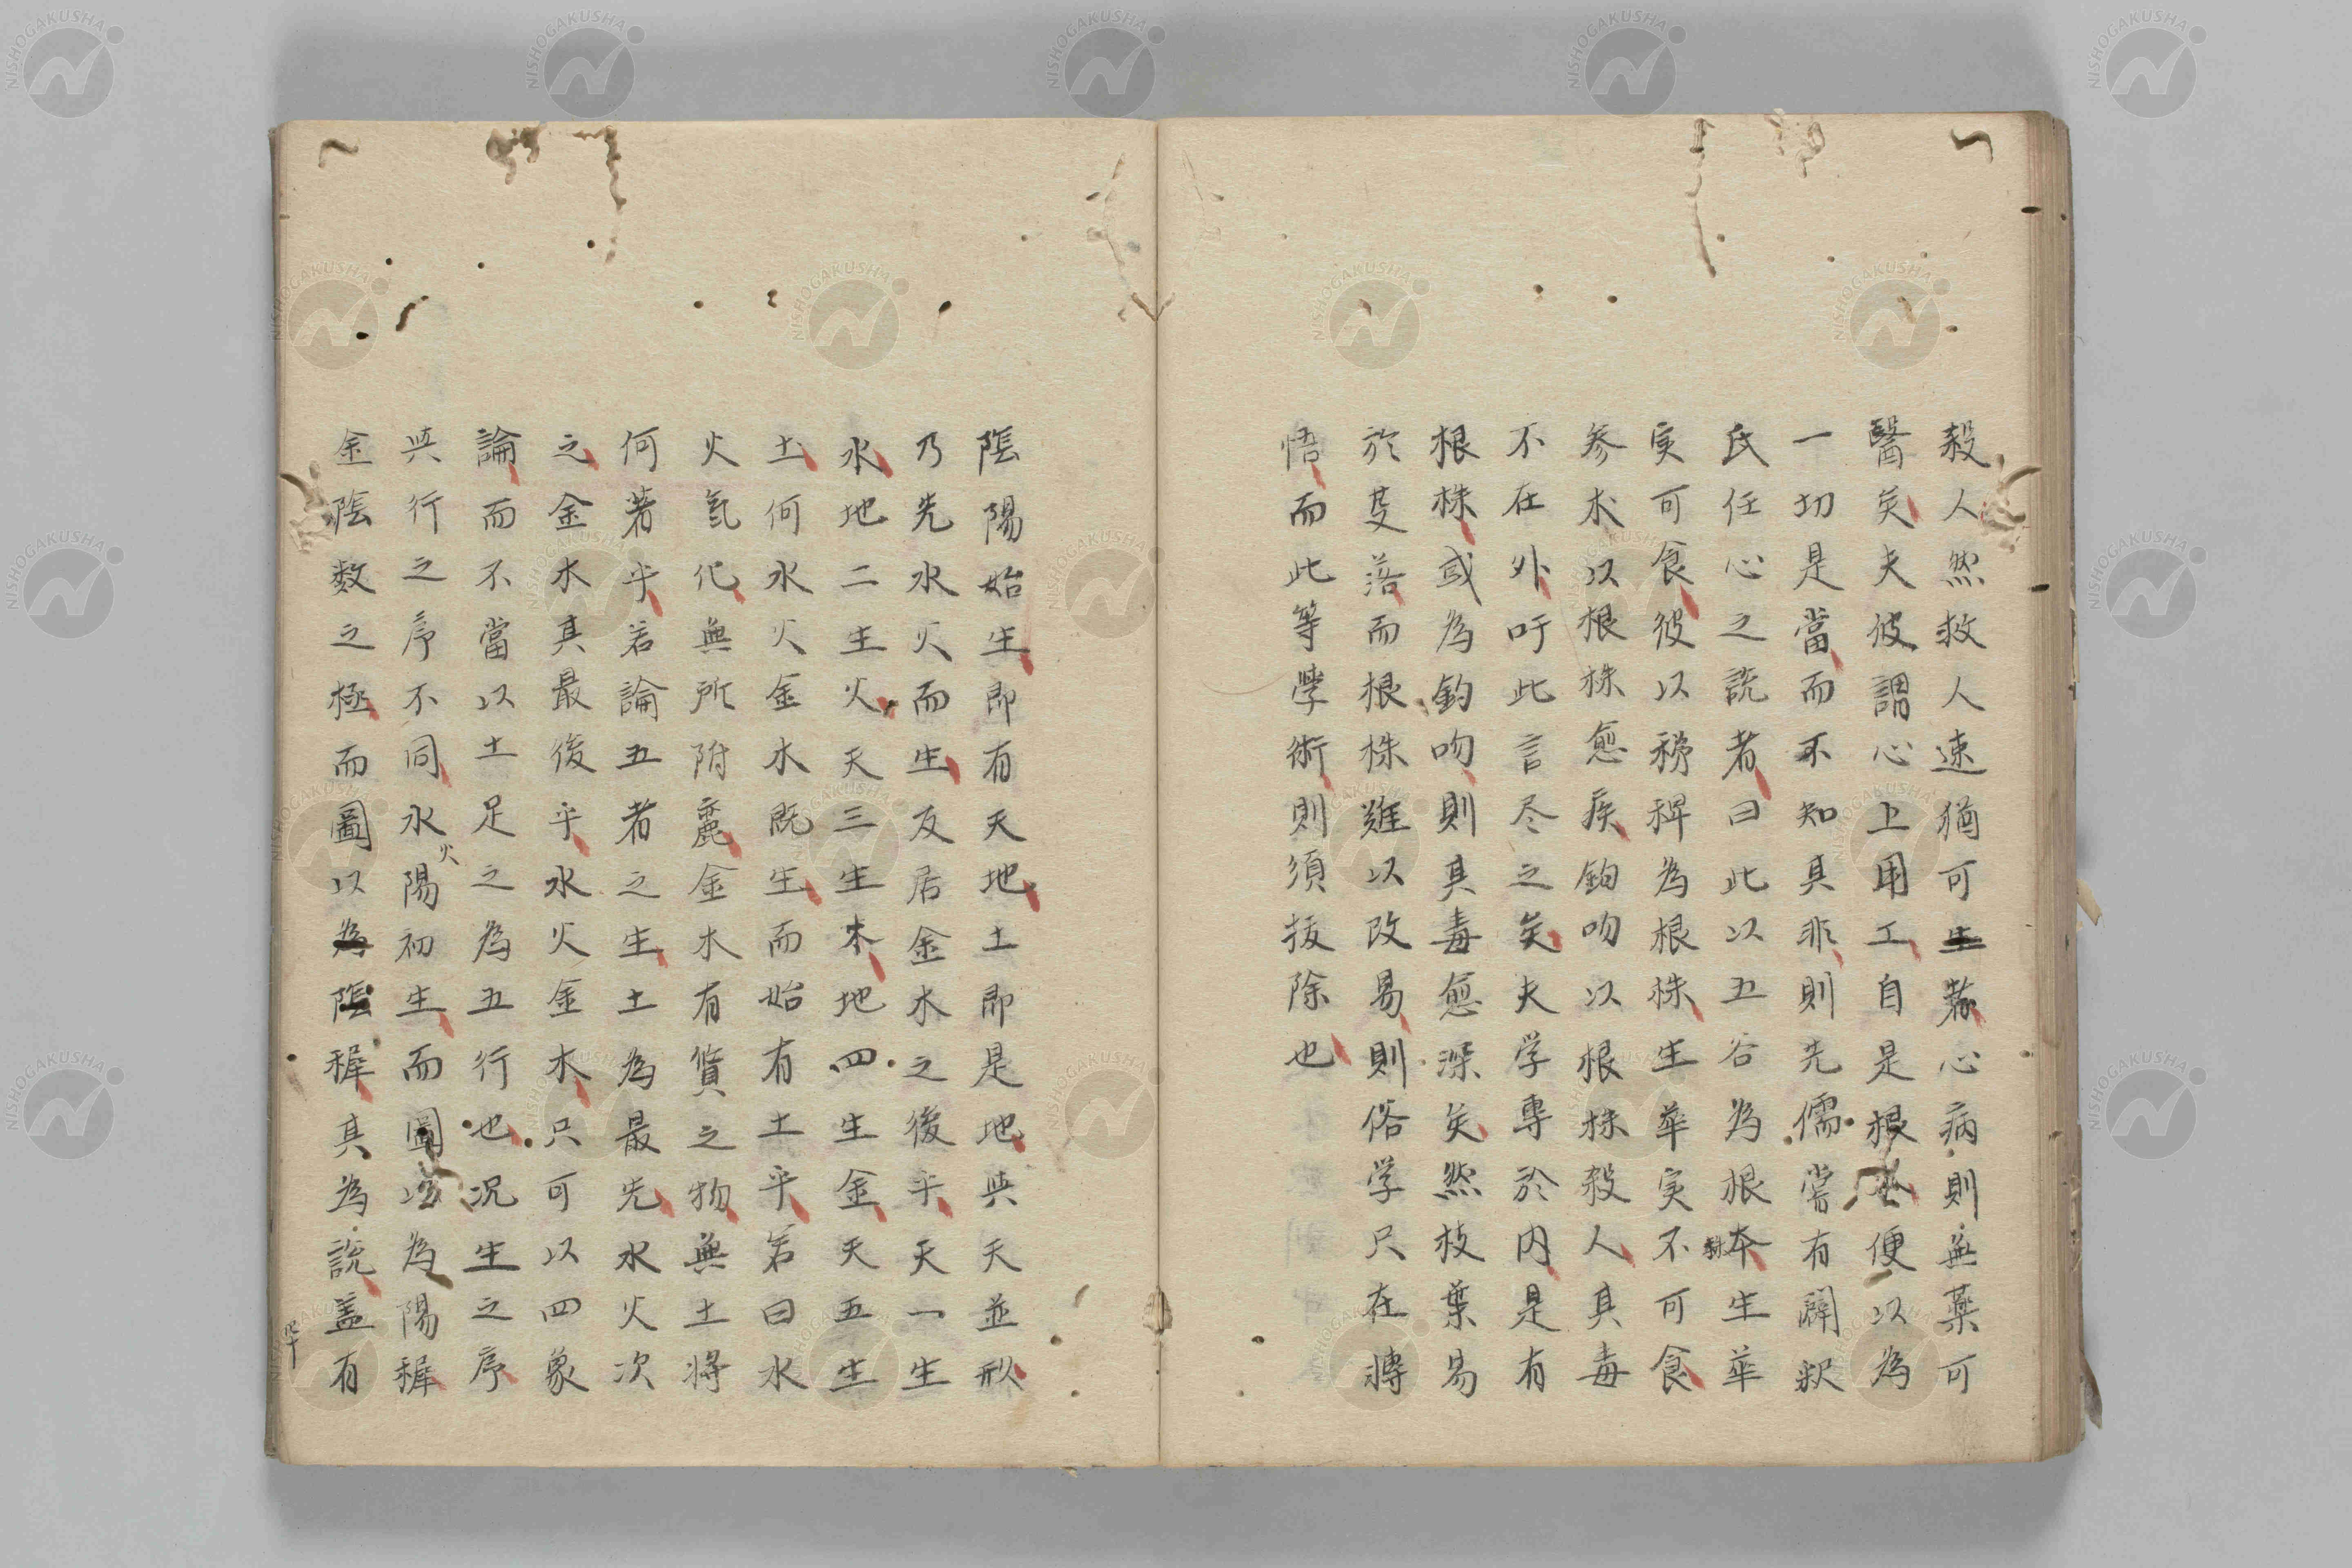 殺人然救人速猶可若心病則無薬可
醫矣夫彼謂心上用工自是根本便以為
一切是當而不知其非則先儒嘗有闢釈
氏任心之説者曰此以五谷為根株生華
実可食彼以稊稗為根株生華実不可食
参朮以根株愈疾鉤吻以根株殺人其毒
不在外吁此言尽之矣夫学専於内是有
根株或為鈎吻則其毒愈深矣然枝葉易
於芟落而根株難以改易則俗学只在轉
悟而此等學術則須拔除也
陰陽始生即有天地土即是地与天並形
乃先水火而生反居金木之後乎天一生
水地二生火天三生木地四生金天五生
土何水火金木既生而始有土乎若曰水
火氣化無所附麗金木有質之物無土将
何著乎若論五者之生土為最先水火次
之金木其最後乎水火金木只可以四象
論而不當以土足之為五行也况生之序
与行之序不同水火陽初生而圖以為陽穉
金陰数之極而圖以陰穉其為説蓋有
四十
NISHOGAKUSHA